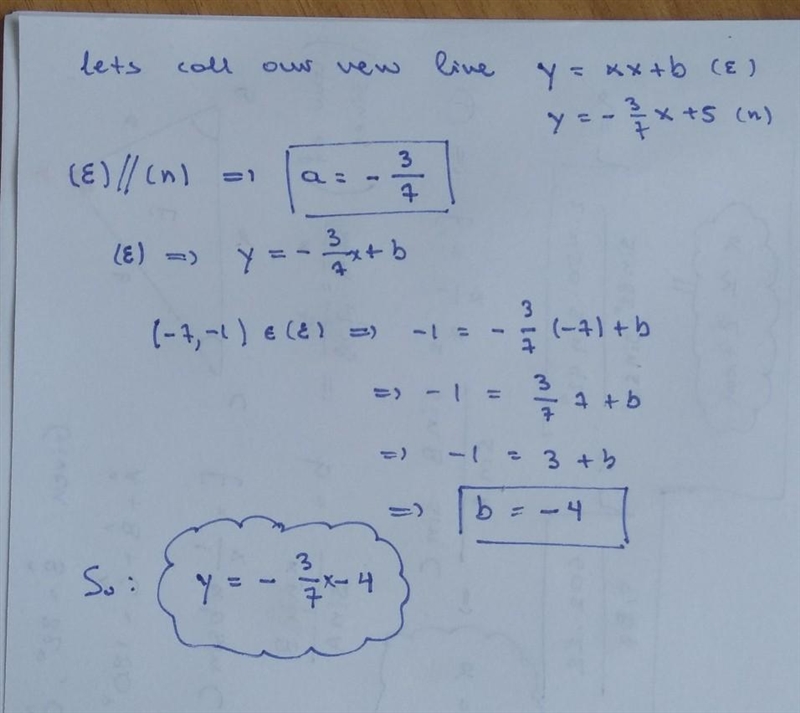 lets call our new line y = αx+b (ε)
y = - 3/7 x + 5 (n)
(ε) // (n) => a = - 3/7
(ε) => y = - 3/7 x + b
(-7, -1) ϵ (ε) => -1 = - 3/7 (-7) + b
=> -1 = 3/7 7 + b
=> -1 = 3 + b
=> b = -4
So: y = - 3/7 x - 4